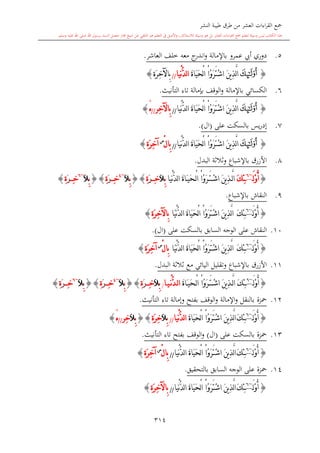 جمع القراءات العشر من طرق طيبة النشر
٥. دوري أبي عمرو بالإمالة واندرج معه خلف العاشر.
﴿ أُوْلَٰٓئِكَ ٱلَّذِينَ ٱشۡتَرَوُاْ ٱلۡحَيَوٰةَ ٱلدُّنۡيَا//بِٱلۡأٓخِرَةِ ﴾
٦. الكسائي بالإمالة والوقف بإمالة تاء التأنيث.
﴿ أُوْلَٰٓئِكَ ٱلَّذِينَ ٱشۡتَرَوُاْ ٱلۡحَيَوٰةَ ٱلدُّنۡيَا//بِٱلۡأٓخِرَةِ ﴾
٧. إدريس بالسكت على (ال).
﴿ أُوْلَٰٓئِكَ ٱلَّذِينَ ٱشۡتَرَوُاْ ٱلۡحَيَوٰةَ ٱلدُّنۡيَا//بِٱلۡأٓخِرَةِ ﴾
٨. الأزرق بالإشباع وثلاثة البدل.
﴿ أُوْلَٰٓئِكَ ٱلَّذِينَ ٱشۡتَرَوُاْ ٱلۡحَيَوٰةَ ٱلدُّنۡيَا بِٱلَأخِرَةِ ﴾ ﴿ بِٱلَأخِرَةِ ﴾ ﴿ بِٱلَأخِرَةِ ﴾
٩. النقاش بالإشباع.
﴿ أُوْلَٰٓئِكَ ٱلَّذِينَ ٱشۡتَرَوُاْ ٱلۡحَيَوٰةَ ٱلدُّنۡيَا بِٱلۡأٓخِرَةِ ﴾
١٠. النقاش على الوجه السابق بالسكت على (ال).
﴿ أُوْلَٰٓئِكَ ٱلَّذِينَ ٱشۡتَرَوُاْ ٱلۡحَيَوٰةَ ٱلدُّنۡيَا بِٱلۡأٓخِرَةِ ﴾
١١. الأزرق بالإشباع وتقليل اليائي مع ثلاثة البدل.
﴿ أُوْلَٰٓئِكَ ٱلَّذِينَ ٱشۡتَرَوُاْ ٱلۡحَيَوٰةَ ٱلدُّنۡيَا//بِٱلَأخِرَةِ ﴾ ﴿ بِٱلَأخِرَةِ ﴾ ﴿ بِٱلَأخِرَةِ ﴾
١٢. حمزة بالنقل والإمالة والوقف بفتح وإمالة تاء التأنيث.
﴿ أُوْلَٰٓئِكَ ٱلَّذِينَ ٱشۡتَرَوُاْ ٱلۡحَيَوٰةَ ٱلدُّنۡيَا//بِٱلَأخِرَةِ ﴾ ﴿ بِٱلَأخِرَةِ ﴾
١٣. حمزة بالسكت على (ال) والوقف بفتح تاء التأنيث.
﴿ أُوْلَٰٓئِكَ ٱلَّذِينَ ٱشۡتَرَوُاْ ٱلۡحَيَوٰةَ ٱلدُّنۡيَا//بِٱلۡأٓخِرَةِ ﴾
١٤. حمزة على الوجه السابق بالتحقيق.
﴿ أُوْلَٰٓئِكَ ٱلَّذِينَ ٱشۡتَرَوُاْ ٱلۡحَيَوٰةَ ٱلدُّنۡيَا//بِٱلۡأٓخِرَةِ ﴾
٣١٤